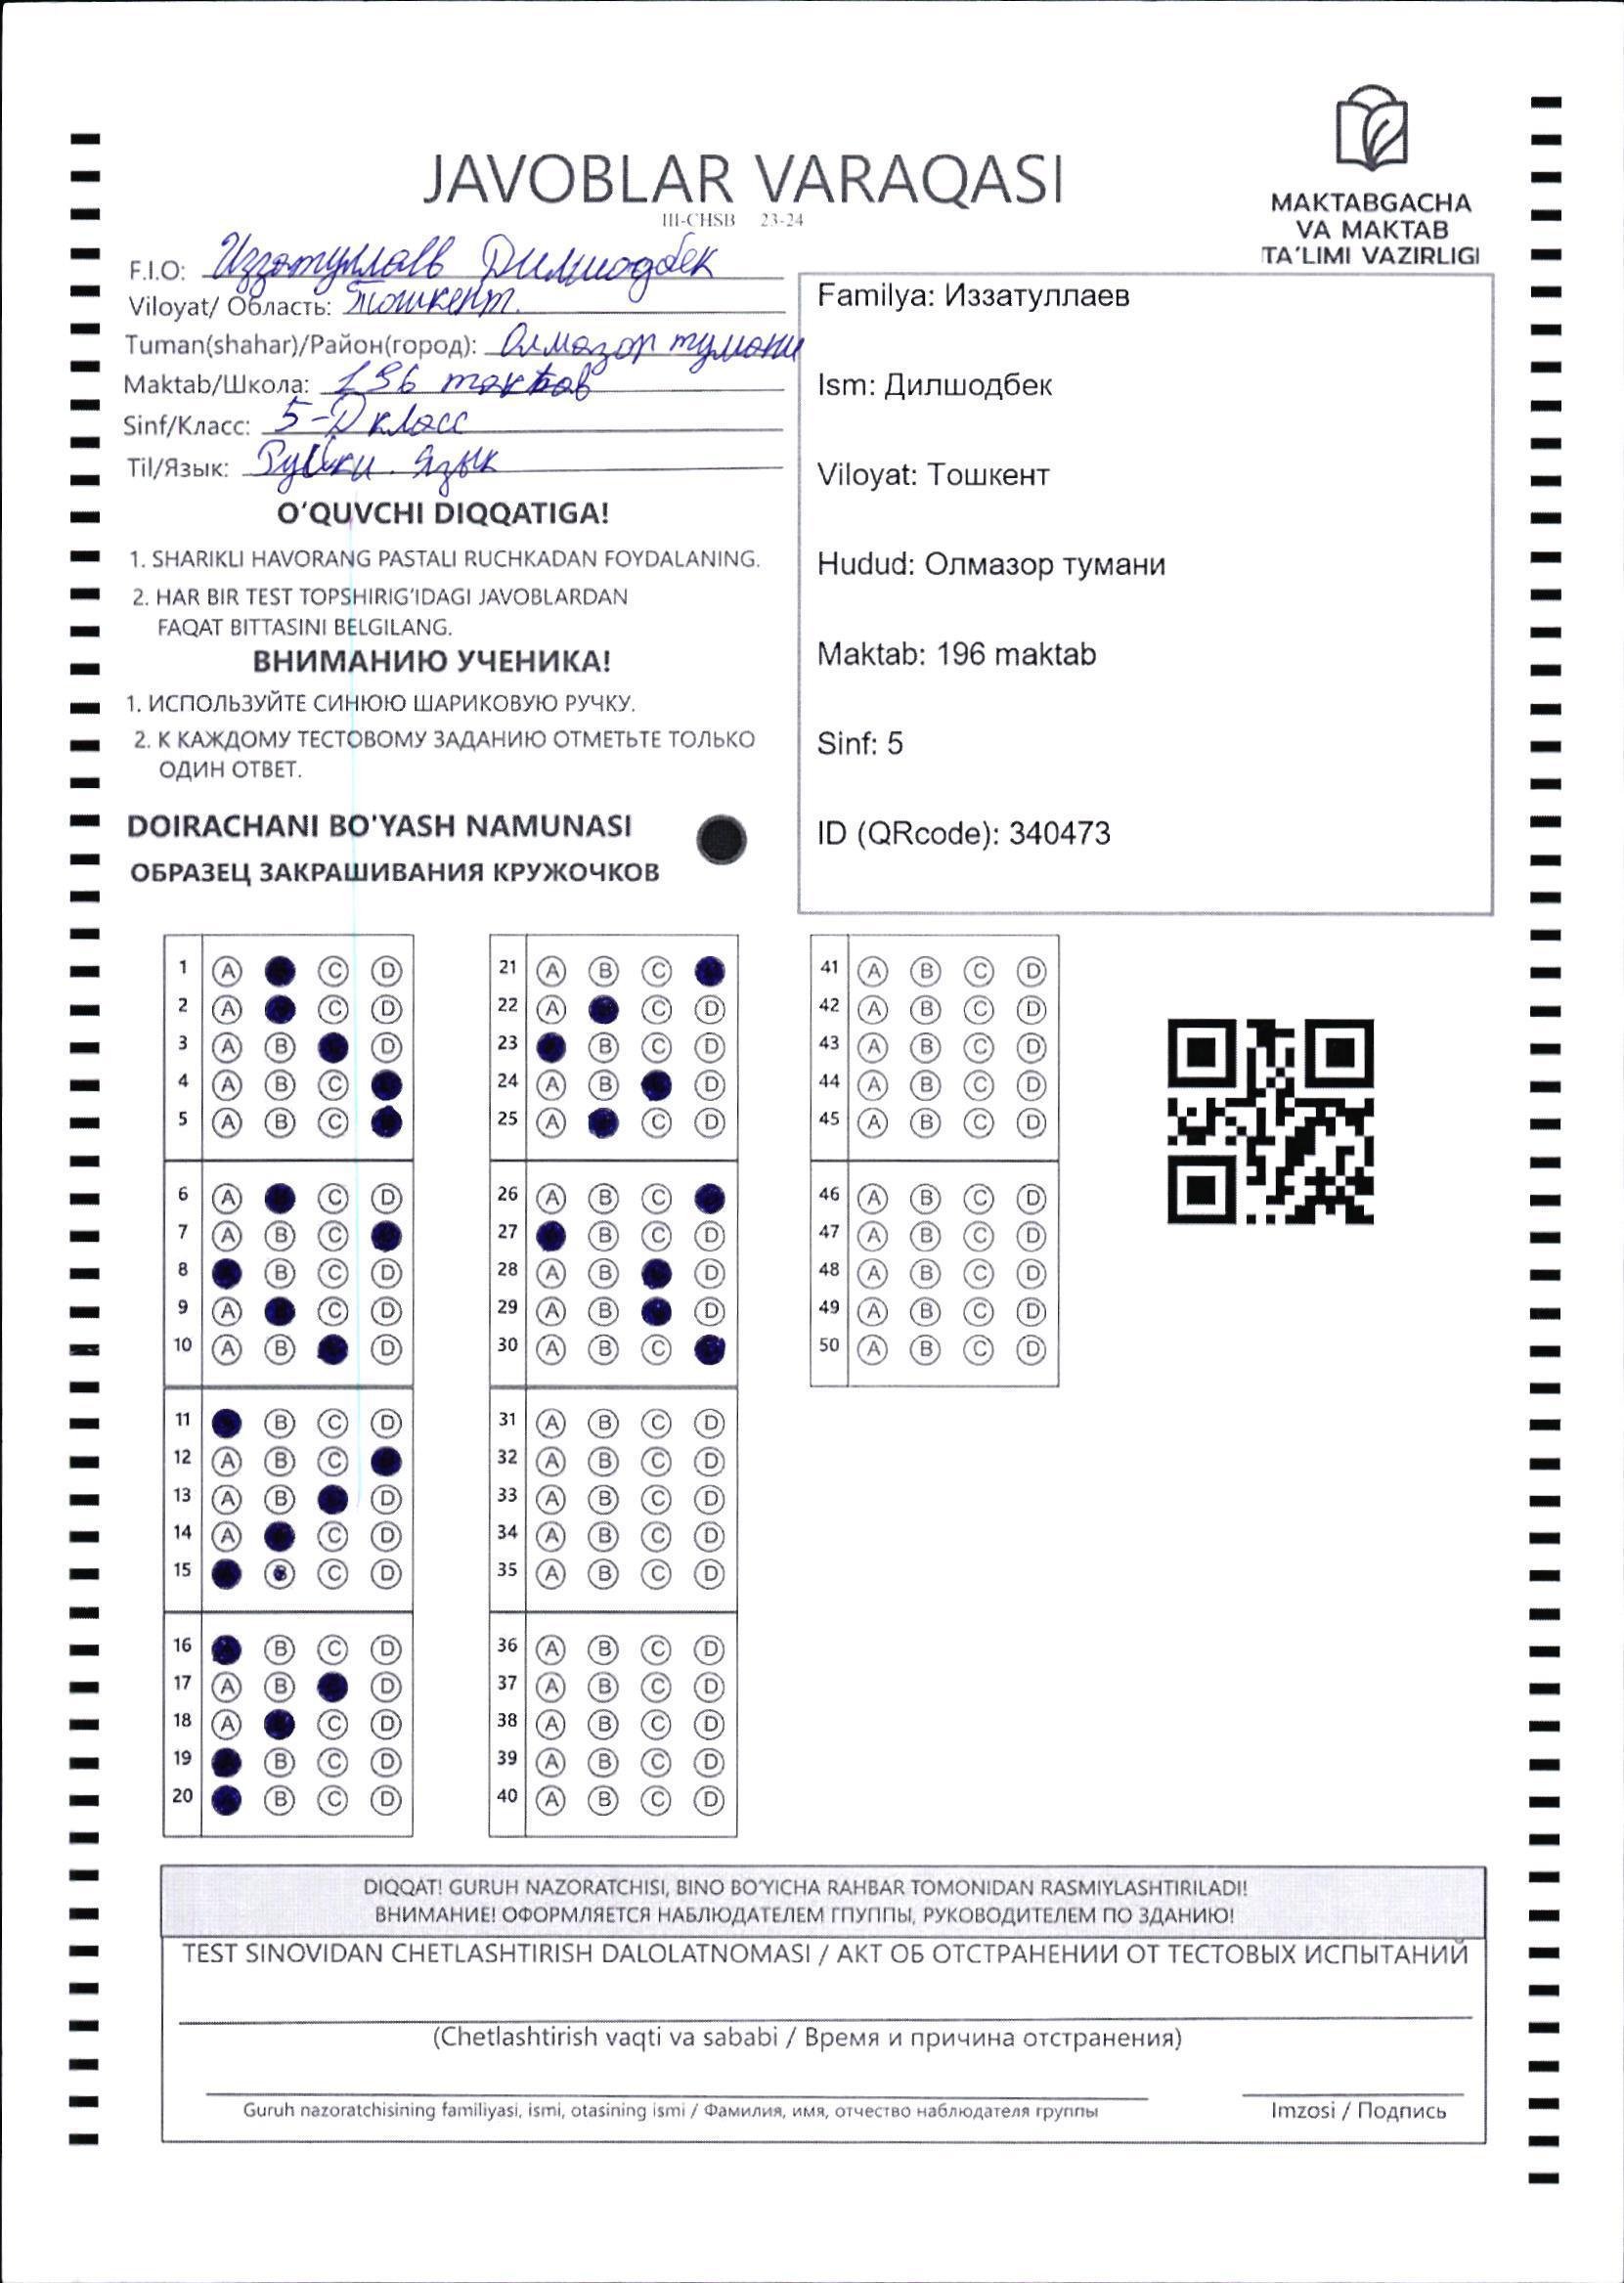 JAVOBLAR VARAQASI
III-CHSB 23-24
MAKTABGACHA
VA MAKTAB
TA'LIMI VAZIRLIGI
F.I.O: Иззатуллаев Дилшодбек
Viloyat/ Область: Тошкент.
Tuman(shahar)/Район(город): Олмазор тумани
Maktab/Школа: 196 мактав
Sinf/Класс: 5-D класс
Til/Язык: язык
O'QUVCHI DIQQATIGA!
1. SHARIKLI HAVORANG PASTALI RUCHKADAN FOYDALANING.
2. HAR BIR TEST TOPSHIRIG'IDAGI JAVOBLARDAN
FAQAT BITTASINI BELGILANG.
ВНИМАНИЮ УЧЕНИКА!
1. ИСПОЛЬЗУЙТЕ СИНЮЮ ШАРИКОВУЮ РУЧКУ.
2. К КАЖДОМУ ТЕСТОВОМУ ЗАДАНИЮ ОТМЕТЬТЕ ТОЛЬКО
ОДИН ОТВЕТ.
DOIRACHANI BO'YASH NAMUNASI
ОБРАЗЕЦ ЗАКРАШИВАНИЯ КРУЖОЧКОВ
Familya: Иззатуллаев
Ism: Дилшодбек
Viloyat: Тошкент
Hudud: Олмазор тумани
Maktab: 196 maktab
Sinf: 5
ID (QRcode): 340473
1 A C D
2 A C D
3 A B D
4 A B C
5 A B C
6 A C D
7 A B C
8 B C D
9 A C D
10 A B D
11 B C D
12 A B C
13 A B D
14 A C D
15 B C D
16 B C D
17 A B D
18 A C D
19 B C D
20 B C D
21 A B C
22 A C D
23 B C D
24 A B D
25 A C D
26 A B C
27 B C D
28 A B D
29 A B D
30 A B C
31 A B C D
32 A B C D
33 A B C D
34 A B C D
35 A B C D
36 A B C D
37 A B C D
38 A B C D
39 A B C D
40 A B C D
41 A B C D
42 A B C D
43 A B C D
44 A B C D
45 A B C D
46 A B C D
47 A B C D
48 A B C D
49 A B C D
50 A B C D
DIQQAT! GURUH NAZORATCHISI, BINO BO'YICHA RAHBAR TOMONIDAN RASMIYLASHTIRILADI!
ВНИМАНИЕ! ОФОРМЛЯЕТСЯ НАБЛЮДАТЕЛЕМ ГПУППЫ, РУКОВОДИТЕЛЕМ ПО ЗДАНИЮ!
TEST SINOVIDAN CHETLASHTIRISH DALOLATNOMASI / АКТ ОБ ОТСТРАНЕНИИ ОТ ТЕСТОВЫХ ИСПЫТАНИЙ
(Chetlashtirish vaqti va sababi / Время и причина отстранения)
Guruh nazoratchisining familiyasi, ismi, otasining ismi / Фамилия, имя, отчество наблюдателя группы
Imzosi / Подпись